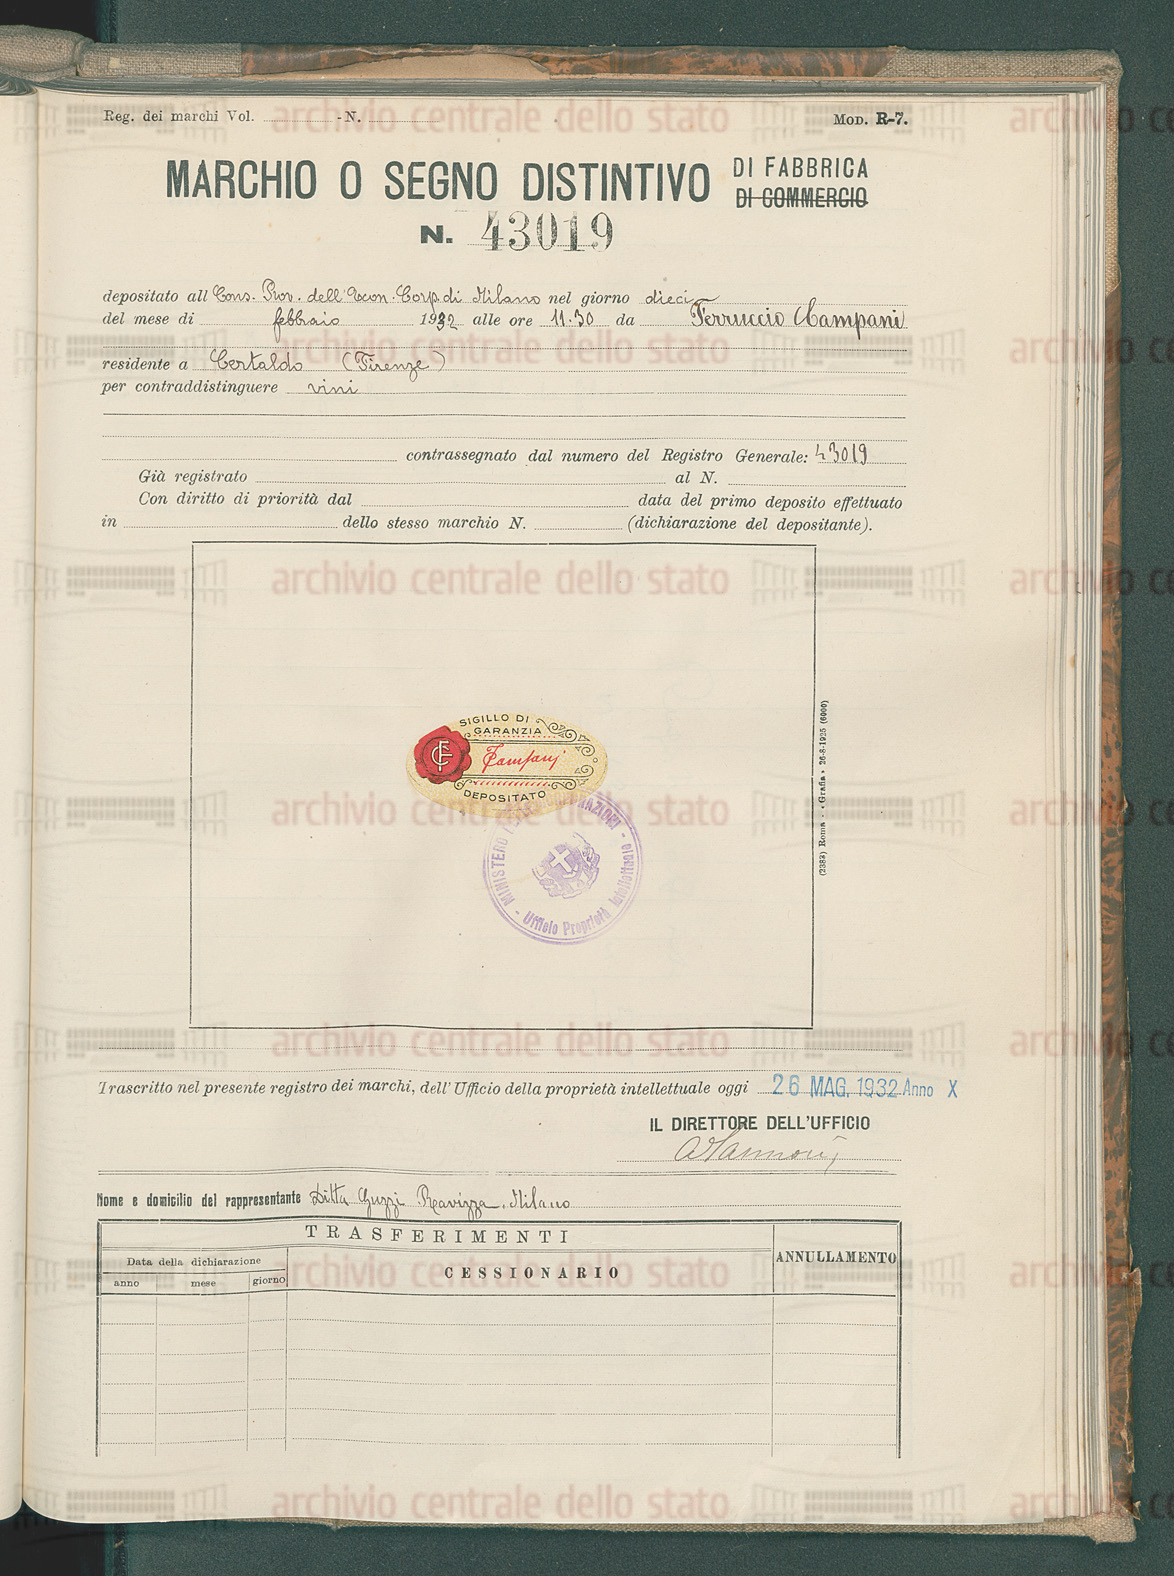 Reg. dei marchi Vol. - N.
MOD. R-7.
MARCHIO O SEGNO DISTINTIVO DI FABBRICA
DI COMMERCIO
N. 43019
depositato all Cons. Prov. dell'Econ. Corp. di Milano nel giorno dieci
del mese di febbraio 1932 alle ore 11.30 da Ferruccio Campani
residente a Certaldo (Firenze)
per contraddistinguere vini
contrassegnato dal numero del Registro Generale: 43019
Già registrato al N.
Con diritto di priorità dal data del primo deposito effettuato
in dello stesso marchio N. (dichiarazione del depositante).
SIGILLO DI
GARANZIA
CF
FCampani
DEPOSITATO
MINISTERO DELLE CORPORAZIONI - Ufficio Proprietà Intellettuale -
(2383) Roma - «Grafia» 26-8-1925 (6000)
Trascritto nel presente registro dei marchi, dell'Ufficio della proprietà intellettuale oggi 26 MAG. 1932 Anno X
IL DIRETTORE DELL'UFFICIO
Nome e domicilio del rappresentante Ditta Guzzi Ravizza. Milano
TRASFERIMENTI
ANNULLAMENTO
Data della dichiarazione
CESSIONARIO
anno mese giorno
archivio centrale dello stato